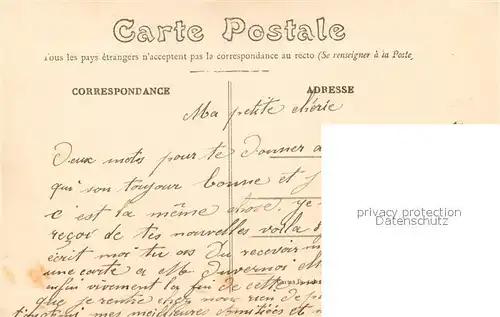 Carte Postale
Tous les pays étrangers n'acceptent pas la correspondance au recto (Se renseigner à la Poste
CORRESPONDANCE
ADRESSE
Ma petite chérie
Deux mots pour te donner
qui son toujour bonne et
c'est la même chose. je
reçoi de tes nouvelles voila
écrit moi tu as Du recevoir
une carte a M Duvernoi
enfin vivement la fin de cette
que je rentre chez nous rien de
mes meilleures amitiées et
privacy protection
Datenschutz